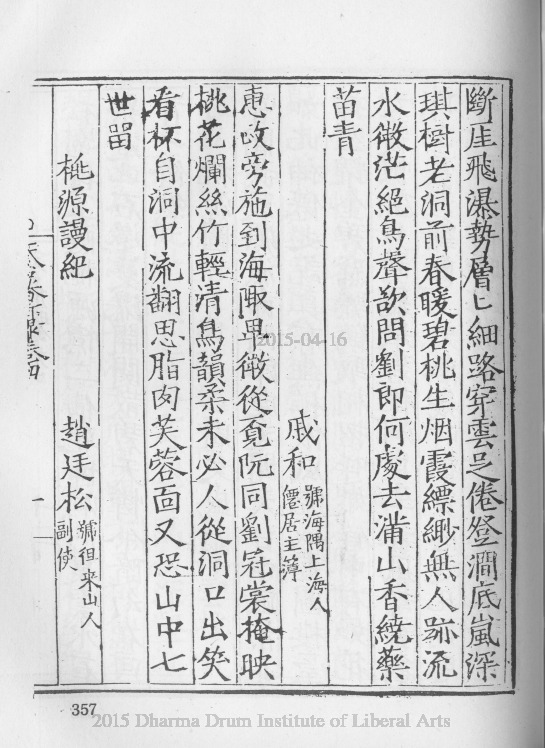 斷崖飛瀑勢層匕細路穿雲足倦登澗底嵐深
琪樹老洞前春暖碧桃生烟霞縹緲無人跡流
水微茫絕鳥聲欲問劉郎何處去滿山香繞藥
苗青
戚和 號海隅上海人
僊居主簿
惠政旁施到海陬早微從覓阮同劉冠裳掩映
桃花爛絲竹輕清鳥韻柔未必人從洞口出笑
看杯自洞中流翻思脂肉芙蓉面又恐山中七
世畱
桃源謾紀
趙廷松 號徂来山人
副使
357
2015-04-16
2015 Dharma Drum Institute of Liberal Arts